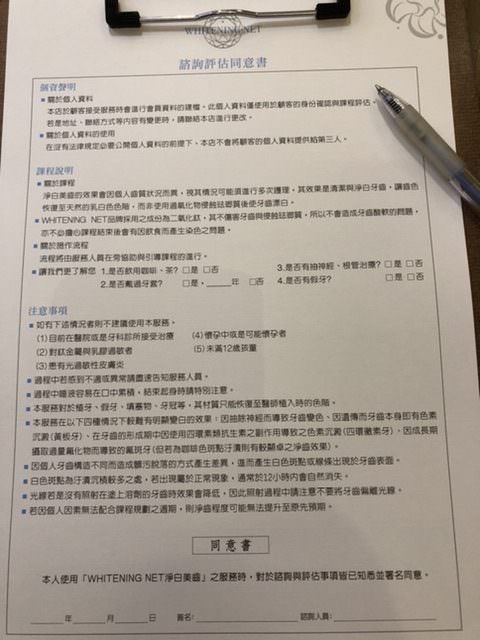 WHITENING NET
諮詢評估同意書
個資聲明
■ 關於個人資料
本店於顧客接受服務時會進行會員資料的建檔。此個人資料僅使用於顧客的身份確認與課程評估。
若是地址、聯絡方式等內容有變更時，請聯絡本店進行更改。
■ 關於個人資料的使用
在沒有法律規定必要公開個人資料的前提下、本店不會將顧客的個人資料提供給第三人。
課程說明
■ 關於課程
淨白美齒的效果會因個人齒質狀況而異，視其情況可能須進行多次護理，其效果是清潔與淨白牙齒，讓齒色
恢復至天然的乳白色色階，而非使用過氧化物侵蝕琺瑯質後使牙齒漂白。
■ WHITENING NET品牌採用之成份為二氧化鈦，其不傷害牙齒與侵蝕琺瑯質，所以不會造成牙齒酸軟的問題，
亦不必擔心課程結束後會有因飲食而產生染色之問題。
■ 關於操作流程
流程將由服務人員在旁協助與引導課程的進行。
■ 讓我們更了解您 1.是否飲用咖啡、茶? □是 □否 3.是否有抽神經、根管治療? □是 □否
2.是否戴過牙套? □是，____年 □否 4.是否有假牙? □是 □否
注意事項
■ 如有下述情況者則不建議使用本服務。
(1)目前在醫院或是牙科診所接受治療 (4)懷孕中或是可能懷孕者
(2)對鈦金屬與乳膠過敏者 (5)未滿12歲孩童
(3)患有光過敏性皮膚炎
■ 過程中若感到不適或異常請盡速告知服務人員。
■ 過程中唾液容易在口中累積，結束起身時請特別注意。
■ 本服務對於植牙、假牙、填塞物、牙冠等，其材質只能恢復至醫師植入時的色階。
■ 本服務在以下四種情況下較難有明顯變白的效果：因抽除神經而導致牙齒變色、因遺傳而牙齒本身即有色素
沉澱(黃板牙)、在牙齒的形成期中因使用四環素類抗生素之副作用導致之色素沉澱(四環黴素牙)、因成長期
攝取過量氟化物而導致的氟斑牙(但若為咖啡色斑點汙漬則有較顯卓之淨齒效果)。
■ 因個人牙齒構造不同而造成髒污脫落的方式產生差異，進而產生白色斑點或線條出現於牙齒表面。
■ 白色斑點為汙漬沉積較多之處，若出現屬於正常現象，通常於12小時內會自然消失。
■ 光線若是沒有照射在塗上溶劑的牙齒時效果會降低，因此照射過程中請注意不要將牙齒偏離光線。
■ 若因個人因素無法配合課程規劃之週期，則淨齒程度可能無法提升至原先預期。
同意書
本人使用「WHITENING NET淨白美齒」之服務時，對於諮詢與評估事項皆已知悉並署名同意。
____年____月____日 簽名：____ 諮詢人員：____